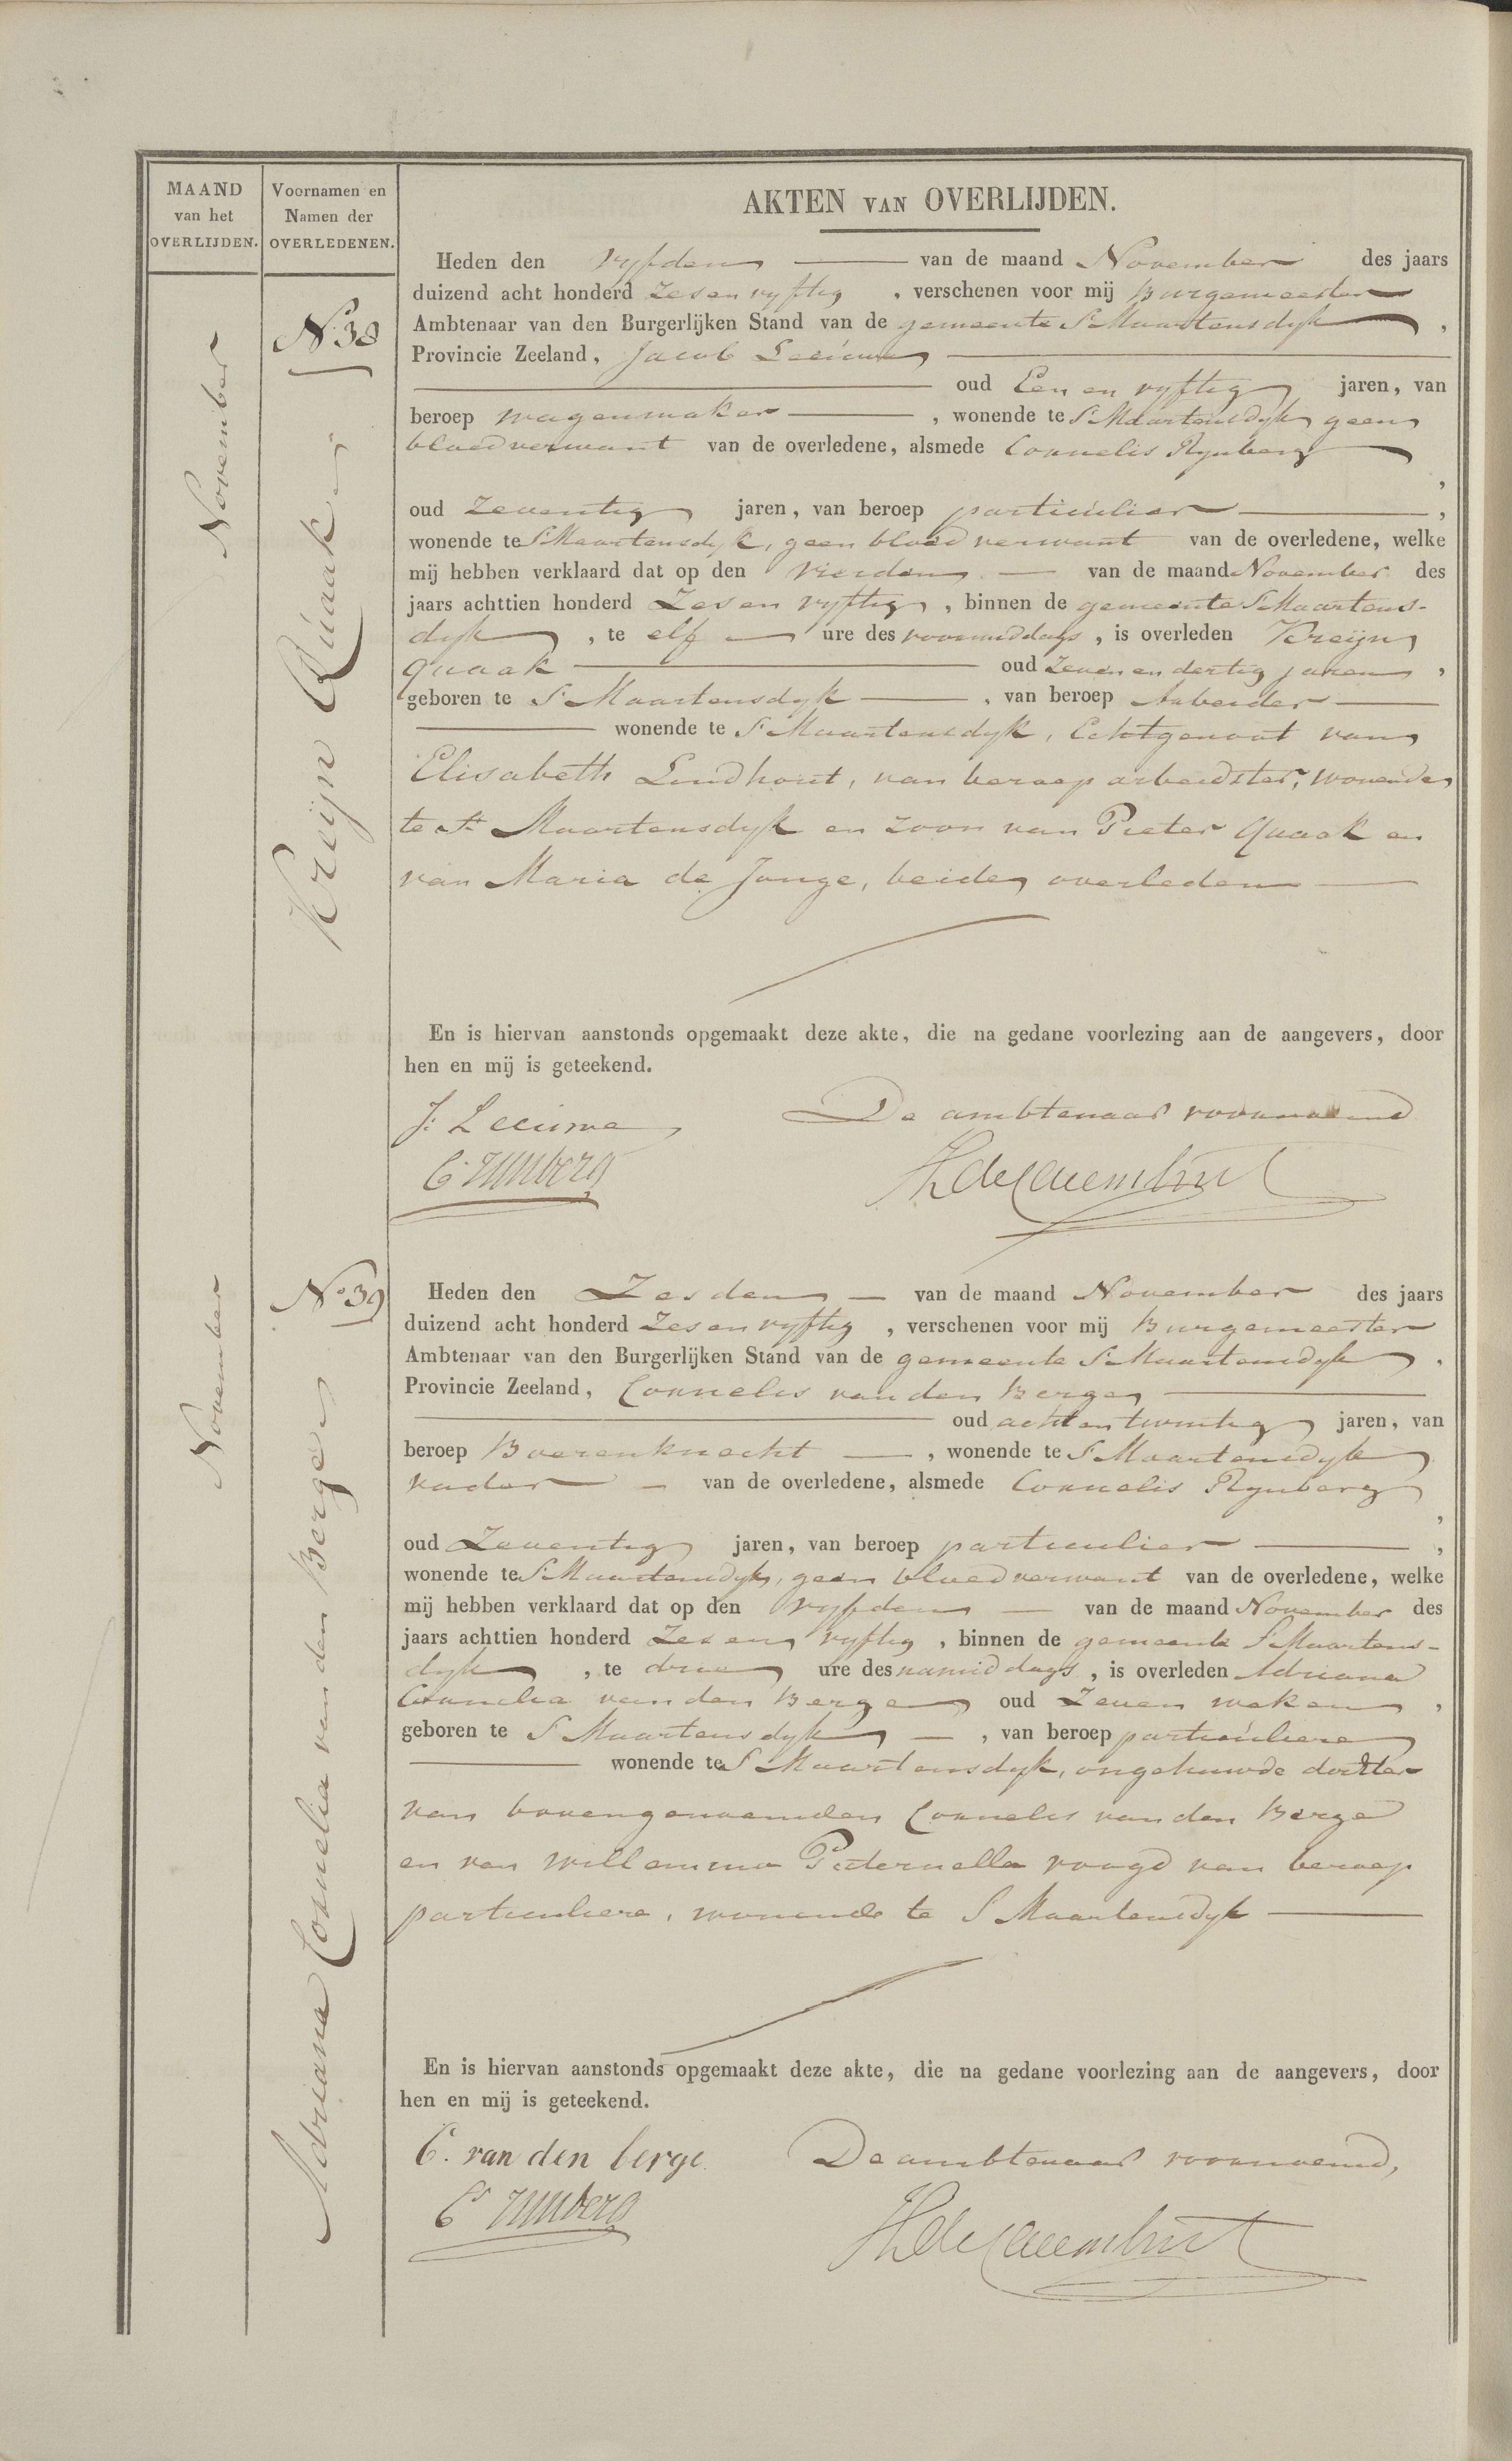 MAAND
van het
OVERLIJDEN.
Voornamen en
Namen der
OVERLEDENEN.
AKTEN VAN OVERLIJDEN.
November
No 38
Krijn Quaak
Heden den vyfden van de maand November des jaars
duizend acht honderd zes en vyftig, verschenen voor mij Burgemeester
Ambtenaar van den Burgerlijken Stand van de gemeente St Maartensdyk,
Provincie Zeeland, Jacob Leeuwe
oud Een en vyftig jaren, van
beroep wagenmaker, wonende te St Maartensdyk geen
bloedverwant van de overledene, alsmede Cornelis Rynberg
,
oud Zeventig jaren, van beroep particulier,
wonende te St Maartensdyk, geen bloedverwant van de overledene, welke
mij hebben verklaard dat op den vierden van de maand November des
jaars achttien honderd Zes en vyftig, binnen de gemeente St Maartens-
dyk, te elf ure des voormiddags, is overleden Kreijn
quaak oud Zeven en dertig jaren,
geboren te St Maartensdyk, van beroep Arbeider
wonende te St Maartensdyk, Echtgenoot van
Elisabeth Lindhout, van beroep arbeidster, wonende
te St Maartensdyk en zoon van Pieter Quaak en
van Maria de Jonge, beide overleden
En is hiervan aanstonds opgemaakt deze akte, die na gedane voorlezing aan de aangevers, door
hen en mij is geteekend.
J. Leeuwe
De ambtenaar voornoemd
C. rijnberg
November
No 39
Adriana Cornelia van den Berge
Heden den Zesden van de maand November des jaars
duizend acht honderd Zes en vyftig, verschenen voor mij Burgemeester
Ambtenaar van den Burgerlijken Stand van de gemeente St Maartensdyk,
Provincie Zeeland, Cornelis van den Berge
oud acht en twintig jaren, van
beroep Boerenknecht, wonende te St Maartensdyk
vader van de overledene, alsmede Cornelis Rynberg
,
oud Zeventig jaren, van beroep particulier,
wonende te St Maartensdyk, geen bloedverwant van de overledene, welke
mij hebben verklaard dat op den vyfden van de maand November des
jaars achttien honderd Zes en vyftig, binnen de gemeente St Maartens-
dyk, te drie ure des namiddags, is overleden Adriana
Cornelia van den Berge oud Zeven weken,
geboren te St Maartensdyk, van beroep particuliere
wonende te St Maartensdyk, ongehuwde dochter
van bovengenoemden Cornelis van den Berge
en van Willemina Pieternella voogd van beroep
particuliere, wonende te St Maartensdyk
En is hiervan aanstonds opgemaakt deze akte, die na gedane voorlezing aan de aangevers, door
hen en mij is geteekend.
C. van den berge
De ambtenaar voornoemd,
C rijnberg